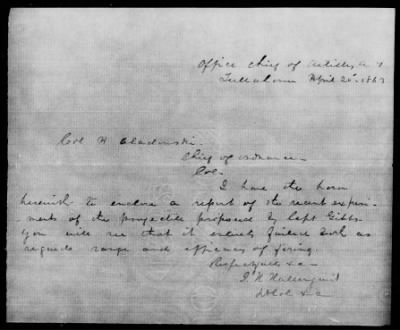 Office Chief of Artillery
Tullahoma April 20th 1863
Col H Oladowski
Chief of ordnance
Col.
I have the honor
herewith to enclose a report of the recent experi-
ments of the projectile proposed by Capt Gibbs
you will see that it entirely failed both as
regards range and efficacy of firing.
Respectfully &c
J. H. Hallonquist
Lt Col &c